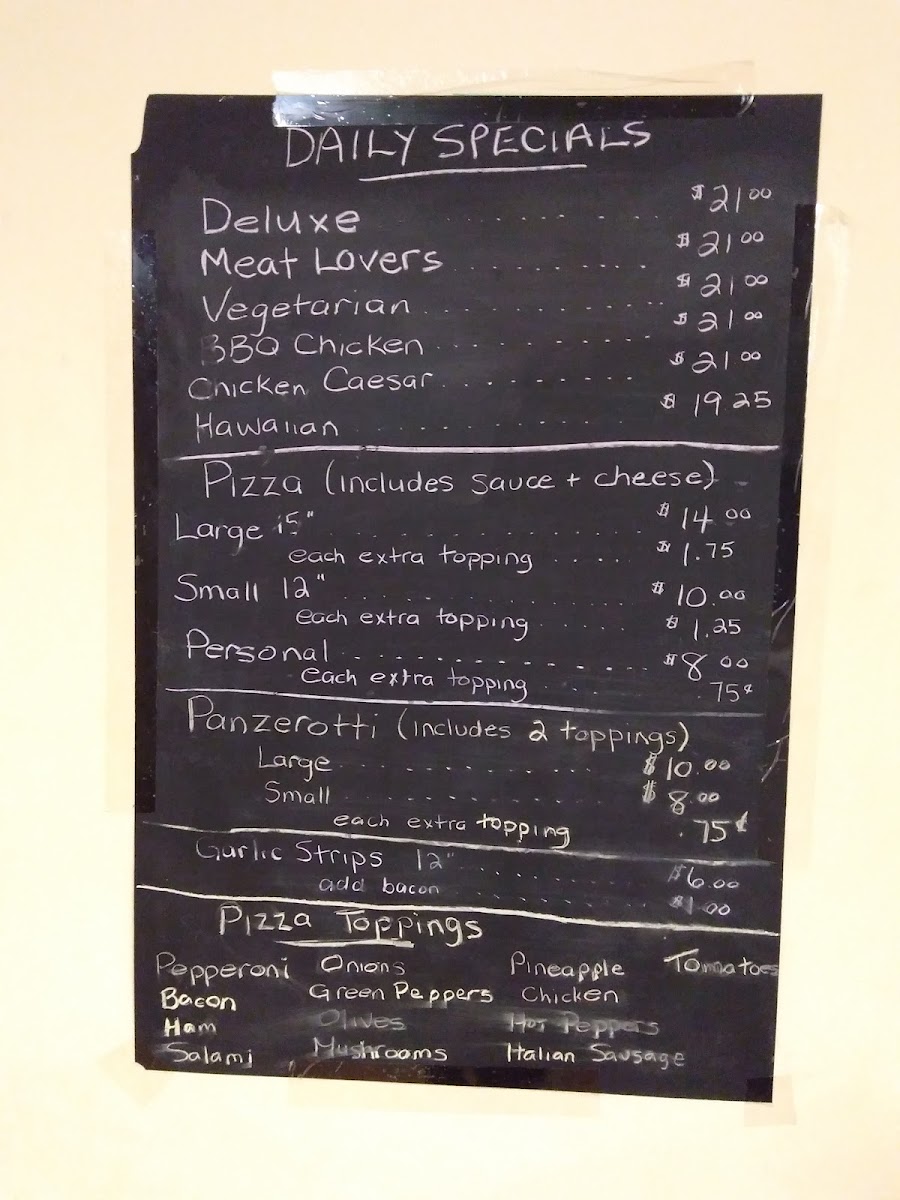 DAILY SPECIALS
Deluxe ........ $21 00
Meat Lovers ........ $21 00
Vegetarian ........ $21 00
BBQ Chicken ........ $21 00
Chicken Caesar ........ $21 00
Hawaiian ........ $19 25
Pizza (includes sauce + cheese)
Large 15" ........ $14 00
each extra topping ..... $1.75
Small 12" ........ $10.00
each extra topping ..... $1.25
Personal ........ $8 00
each extra topping ..... .75¢
Panzerotti (includes 2 toppings)
Large ........ $10.00
Small ........ $8.00
each extra topping .75¢
Garlic Strips 12" ........ $6.00
add bacon ........ $1.00
Pizza Toppings
Pepperoni Onions Pineapple Tomatoes
Bacon Green Peppers Chicken
Ham Olives Hot Peppers
Salami Mushrooms Italian Sausage